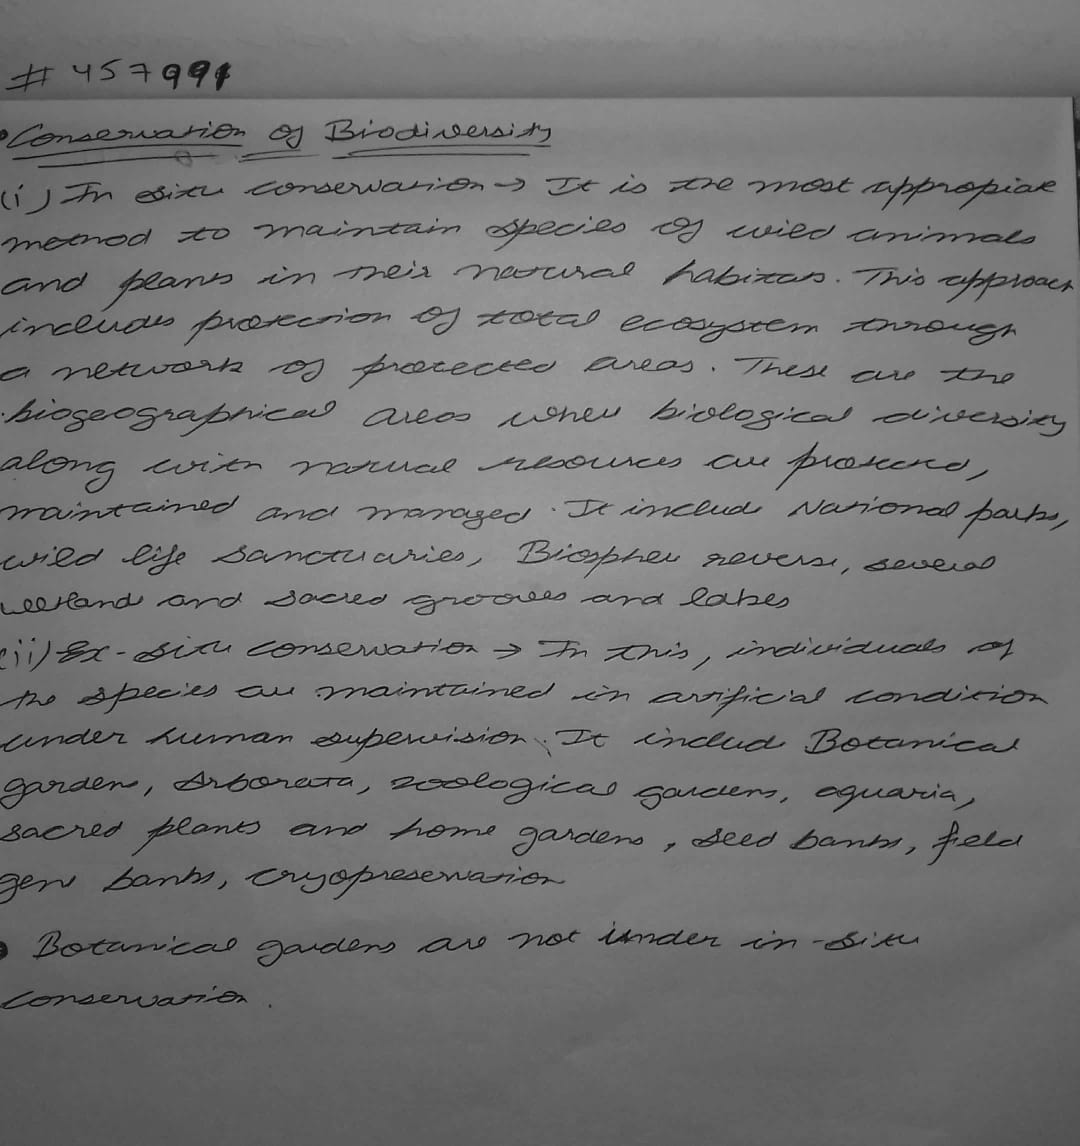 # 457991
• Conservation of Biodiversity
(i) In situ conservation → It is the most appropiate
method to maintain species of wild animals
and plants in their natural habitats. This approach
includes protection of total ecosystem through
a network of protected areas. These are the
biogeographical areas where biological diversity
along with natural resources are protected,
maintained and managed. It include National parks,
wild life sanctuaries, Biosphere reverse, several
wetland and sacred grooves and lakes
(ii) Ex-situ conservation → In this, individuals of
the species are maintained in artificial condition
under human supervision. It include Botanical
gardens, Arboreata, zoological gardens, aquaria,
sacred plants and home gardens, seed banks, field
gene banks, cryopreservation
• Botanical gardens are not under in-situ
conservation.